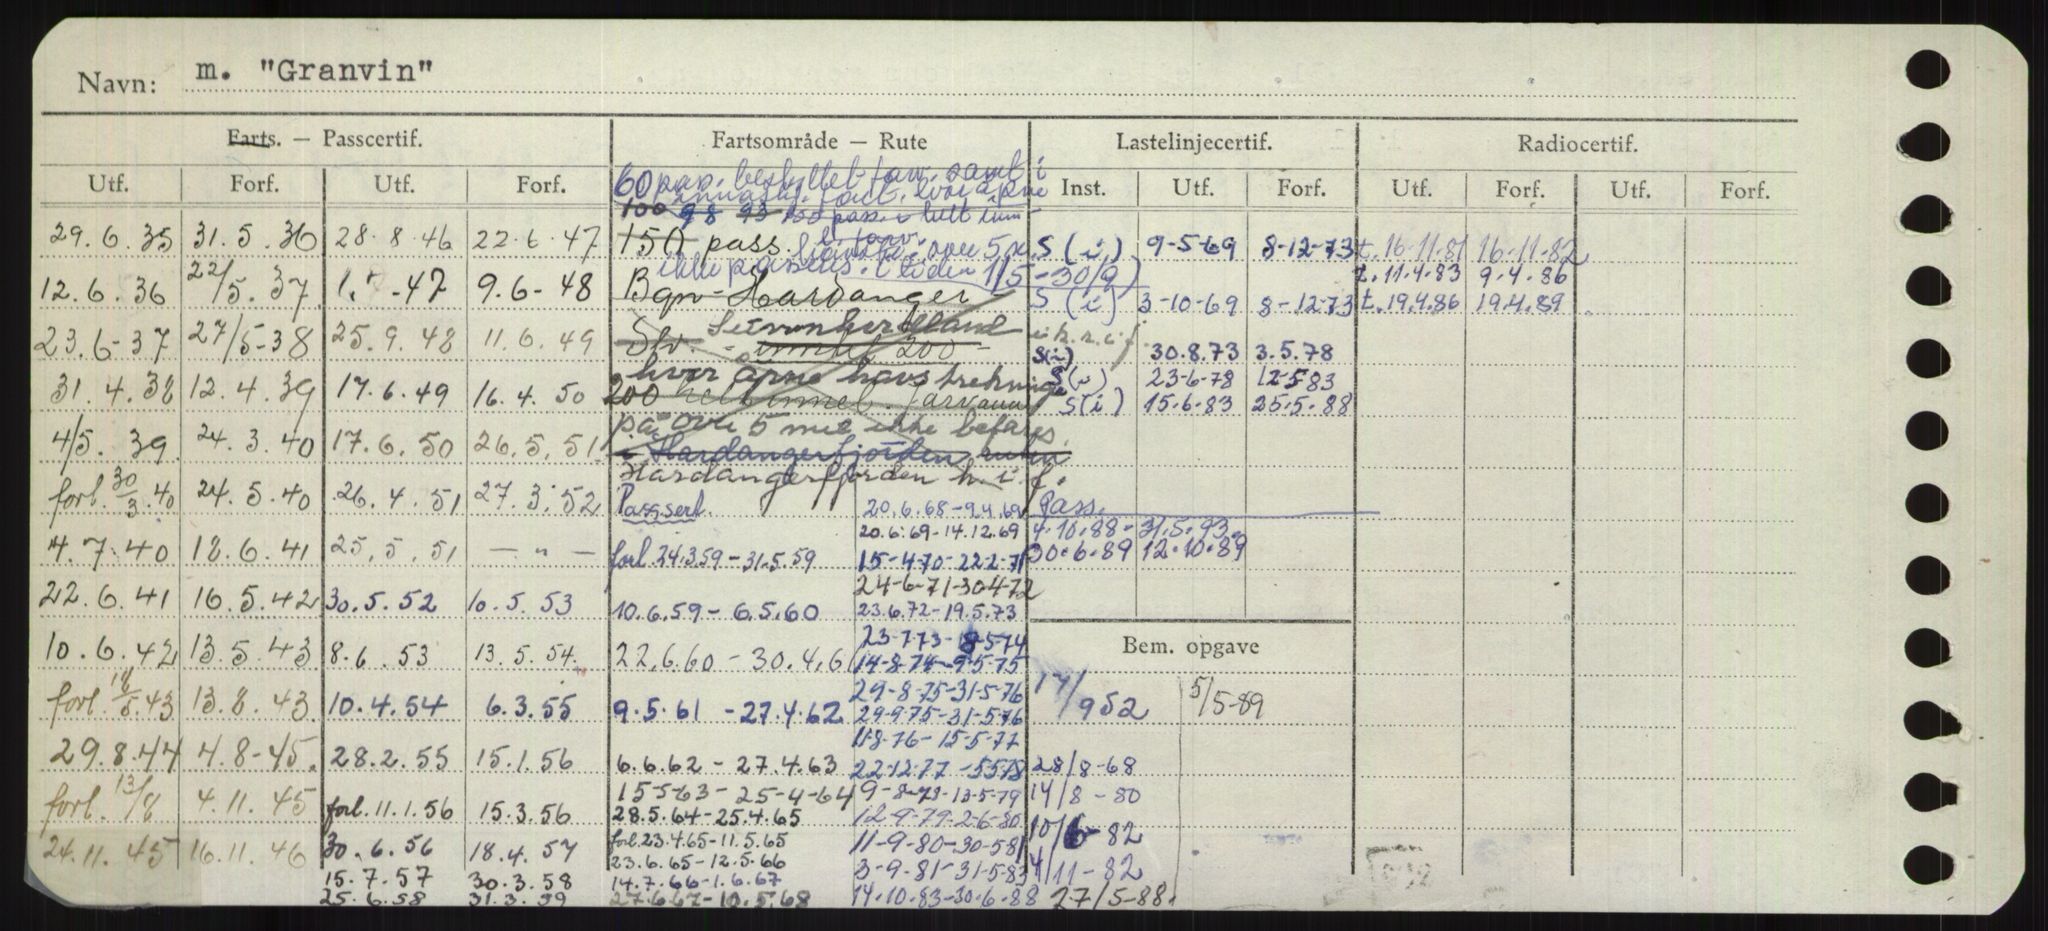 Navn: m. "Granvin"
Farts. — Passcertif. Fartsområde — Rute Lastelinjecertif. Radiocertif.
Utf. Forf. Utf. Forf. Inst. Utf. Forf. Utf. Forf. Utf. Forf.
60 pass. beskyttet farv. samt i
100 98 93 pass. i
29.6.35 31.5.36 28.8.46 22.6.47 150 pass. over 5 S (i) 9-5-69 8-12-73 t. 16.11.81 16.11.82
ikke passeres i tiden 1/5-30/9) t. 11.4.83 9.4.86
12.6.36 22/5.37 -47 9.6-48 Bgn-Hardanger S (i) 3-10-69 8-12-73 t. 19.4.86 19.4.89
23.6-37 27/5-38 25.9.48 11.6.49 200 S(i) 30.8.73 3.5.78
hvor åpne havstrekninger S(i) 23-6-78 12-5-83
31.4.38 12.4.39 17.6.49 16.4.50 200 S(i) 15.6.83 25.5.88
på over 5 mil ikke befares.
4/5.39 24.3.40 17.6.50 26.5.51 i Hardangerfjorden
Hardangerfjorden h. i. f.
forl. 30/3.40 24.5.40 26.4.51 27.3.52 Passsert. 20.6.68-9.4.69 Pass.
20.6.69-14.12.69 4.10.88-31.5.93
4.7.40 18.6.41 25.5.51 — " — forl. 24.3.59-31.5.59 15-4-70-22-2-71 30.6.89 12.10.89
24-6-71-30-4-72
22.6.41 16.5.42 30.5.52 10.5.53 10.6.59-6.5.60 23.6.72-19.5.73
23-7-73-8-5-74 Bem. opgave
10.6.42 13.5.43 8.6.53 13.5.54 22.6.60-30.4.61 14-8-74-9-5-75
29-8-75-31-5-76
forl. 18/5.43 13.8.43 10.4.54 6.3.55 9.5.61-27.4.62 29-9-75-31-5-76 17/9 52 5/5-89
11-8-76-15-5-77
29.8.44 4.8-45 28.2.55 15.1.56 6.6.62-27.4.63 22-12-77-5-5-78 28/8-68
15-5-63-25-4-64 9-8-78-13-5-79 14/8-80
forl. 13/8 4.11.45 forl. 11.1.56 15.3.56 28.5.64-25.4.65 12-9-79-2-6-80
forl. 23.4.65-11.5.65 11-9-80-30-5-81 10/6-82
24.11.45 16.11.46 30.6.56 18.4.57 23.6.65-12.5.66 3-9-81-31-5-83 4/11-82
15.7.57 30.3.58 14.7.66-1.6.67
25.6.58 31.3.59 27.6.67-10.5.68 14.10.83-30.6.88 27/5-88